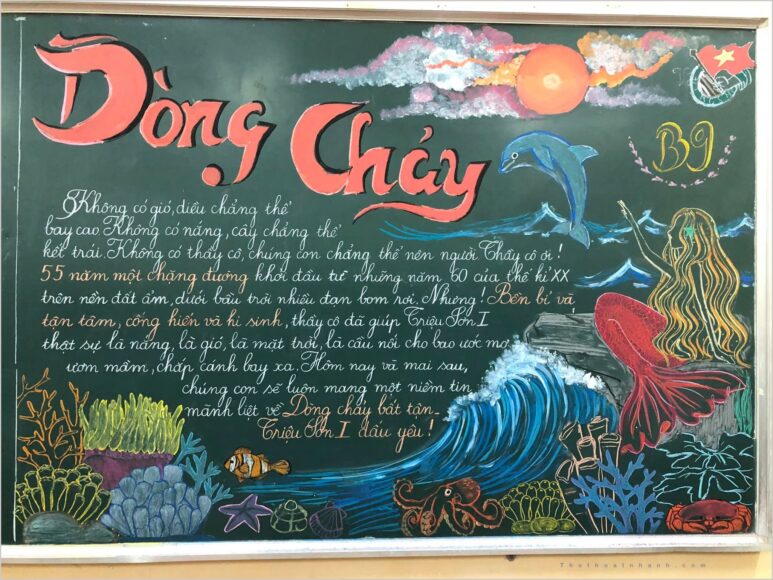 Dòng Chảy
B9
Không có gió, diều chẳng thể
bay cao. Không có nắng, cây chẳng thể
kết trái. Không có thầy cô, chúng con chẳng thể nên người Thầy cô ơi!
55 năm một chặng đường khởi đầu từ những năm 60 của thế kỉ XX
trên nền đất ẩm, dưới bầu trời nhiều đạn bom rơi. Nhưng! Bền bỉ và
tận tâm, cống hiến và hi sinh, thầy cô đã giúp Triệu Sơn I
thật sự là nắng, là gió, là mặt trời, là cầu nối cho bao ước mơ
ươm mầm, chắp cánh bay xa. Hôm nay và mai sau,
chúng con sẽ luôn mang một niềm tin
mãnh liệt về Dòng chảy bất tận_
Triệu Sơn I dấu yêu!
Thuthuatnhanh.com